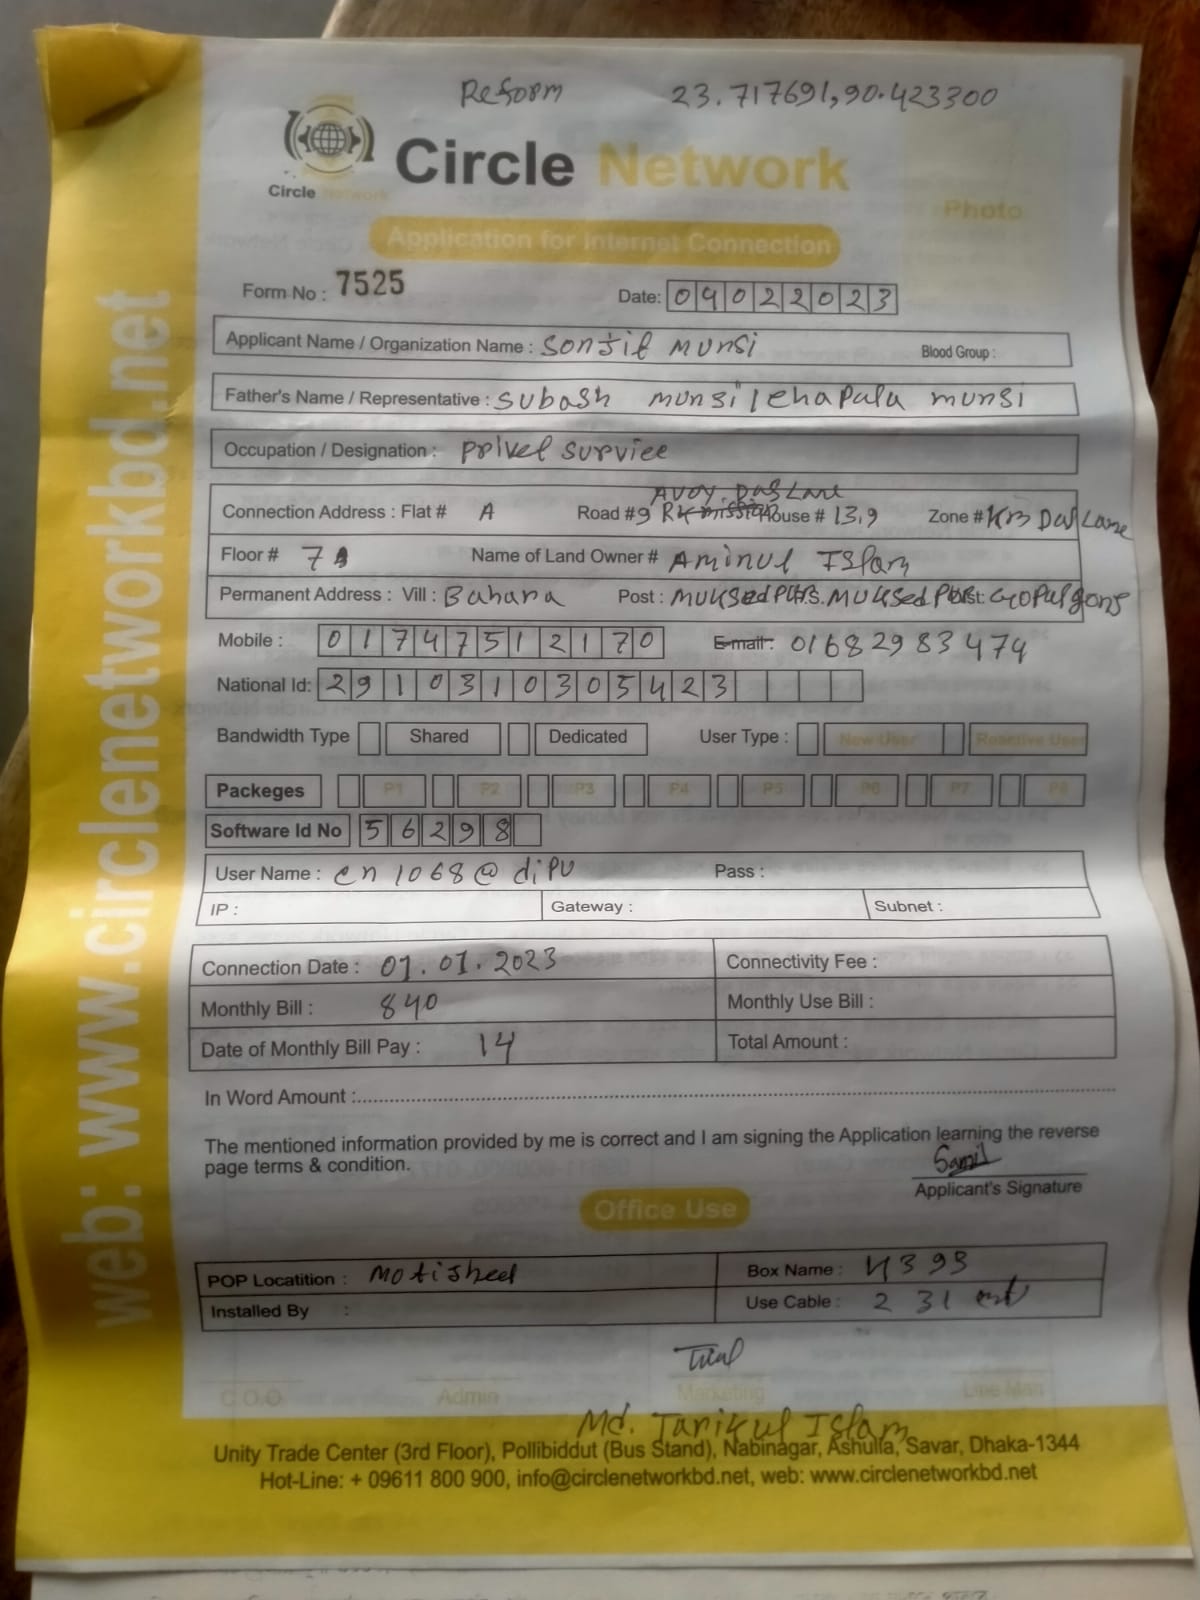 Reform 23.717691,90.423300
Circle Network
Circle Network
Photo
Application for Internet Connection
Form No : 7525
Date: 09022023
Applicant Name / Organization Name : Sonjit munsi Blood Group :
Father's Name / Representative : Subash munsi / chapala munsi
Occupation / Designation : privet surviee
Avoy Das Lane
Connection Address : Flat # A Road # 9 RK mission House # 13,9 Zone # KM Das Lane
Floor # 7 Name of Land Owner # Aminul Islam
Permanent Address : Vill : Bahara Post : MUKSedPur P.S. MUKSedPur Dist: GoPalgong
Mobile : 01747512170 E-mail : 01682983474
National Id: 2910310305423
Bandwidth Type Shared Dedicated User Type : New User Reactive User
Packeges P1 P2 P3 P4 P5 P6 P7 P8
Software Id No 56298
User Name : cn1068@dipu Pass :
IP : Gateway : Subnet :
Connection Date : 01.01.2023 Connectivity Fee :
Monthly Bill : 840 Monthly Use Bill :
Date of Monthly Bill Pay : 14 Total Amount :
In Word Amount :
The mentioned information provided by me is correct and I am signing the Application learning the reverse
page terms & condition.
Applicant's Signature
Office Use
POP Locatition : Motijheel Box Name : 4393
Installed By : Use Cable : 231
C.O.O Admin Marketing Line Man
Md. Tarikul Islam
Unity Trade Center (3rd Floor), Pollibiddut (Bus Stand), Nabinagar, Ashulia, Savar, Dhaka-1344
Hot-Line: + 09611 800 900, info@circlenetworkbd.net, web: www.circlenetworkbd.net
web: www.circlenetworkbd.net